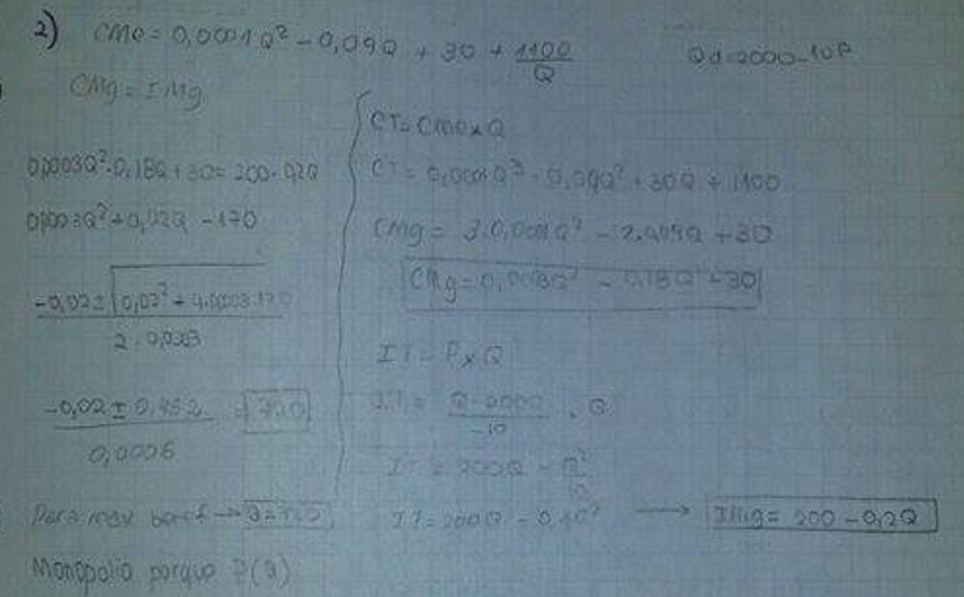 2) CMe = 0,0001Q² - 0,09Q + 30 + 1100/Q
Qd = 2000 - 10P
CMg = IMg
0,0003Q² - 0,18Q + 30 = 200 - 0,2Q
0,0003Q² + 0,02Q - 170
-0,02 ± √0,02² + 4.0,0003.170
2 . 0,0003
-0,02 ± 0,452 = 720
0,0006
Para max benef → Q = 720
Monopolio porque P(Q)
CT = CMe x Q
CT = 0,0001Q³ - 0,09Q² + 30Q + 1100
CMg = 3.0,0001Q² - 2.0,09Q + 30
CMg = 0,0003Q² - 0,18Q + 30
IT = P x Q
IT = Q - 2000 / -10 . Q
IT = 200Q - Q²/10
IT = 200Q - 0,1Q² → IMg = 200 - 0,2Q